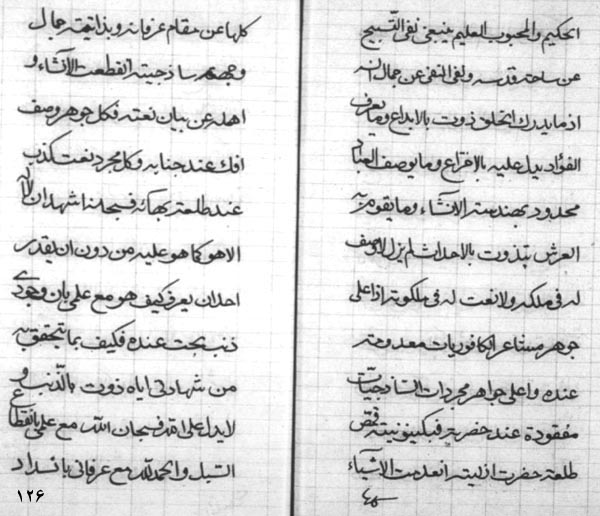 الحكيم والمحبوب العليم ينبغي نفى التسبيح
عن ساحته قدسه ولفى النفى عن جماله
اذ ما يدرك الخلق ذوت بالابداع وما يعرف
الفؤاد يدل عليه بالاختراع وما يوصف العباد
محدود بهندسته الانشاء وما يقوم به
العرش يتذوت بالاحداث لم يزل لا وصف
له في ملكه ولا نعت له في ملكوته اذ اعلى
جوهر مستاعر الكافوريات معدومة
عنده واعلى جواهر مجردات الساذجيات
مفقودة عند حضرته فبكينونيته
طلعة حضرت ازليته انعدمت الاشياء
كلها عن مقام عرفانه وبذاتيته جمال
ساذجيته انقطعت الانشاء و
اهله عن بيان نعته فكل جوهر وصف
افك عند جنابه وكل مجرد نعت كذب
عند طلعة بهائه فسبحانه اشهد ان لا اله
الا هو كما هو عليه من دون ان يقدر
احد ان يعرف كيف هو مع علمي بان وجودي
ذنب بحت عنده فكيف بما يتحقق به
من شهادتي اياه ذوت بالذنب و
لا يدل على الله فسبحان الله مع علمي بانقطاع
السبل والحمد لله مع عرفاني بانسداد
۱۲۶